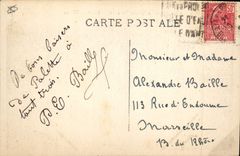 CARTE POSTALE
De bons baisers
de Palette à
tous trois.
P. E. Baille
Monsieur et Madame
Alexandre Baille
113 Rue d'Endoume
Marseille
B. du Rhône